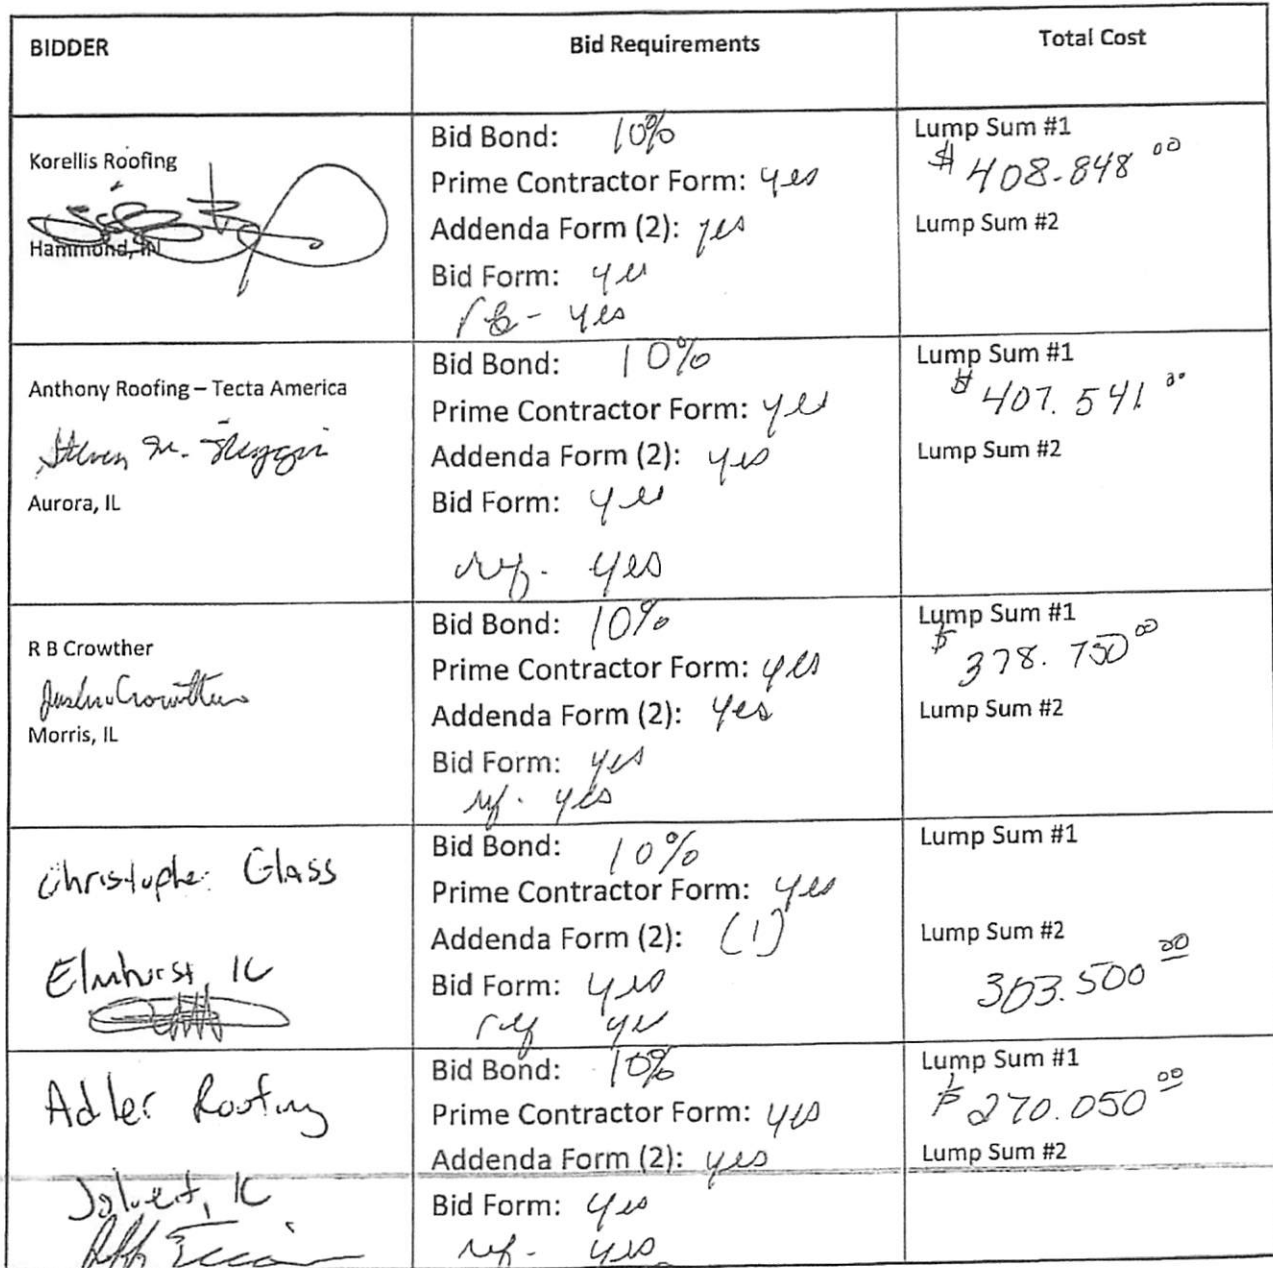 BIDDER
Bid Requirements
Total Cost
Korellis Roofing
Hammond, IN
Bid Bond: 10%
Prime Contractor Form: yes
Addenda Form (2): yes
Bid Form: yes
yes
Lump Sum #1
$ 408.848 00
Lump Sum #2
Anthony Roofing – Tecta America
Steven M.
Aurora, IL
Bid Bond: 10%
Prime Contractor Form: yes
Addenda Form (2): yes
Bid Form: yes
ref. yes
Lump Sum #1
$ 407.541 00
Lump Sum #2
R B Crowther
Crowther
Morris, IL
Bid Bond: 10%
Prime Contractor Form: yes
Addenda Form (2): yes
Bid Form: yes
ref. yes
Lump Sum #1
$ 378.750 00
Lump Sum #2
Christopher Glass
Elmhurst, IL
Bid Bond: 10%
Prime Contractor Form: yes
Addenda Form (2): (1)
Bid Form: yes
ref yes
Lump Sum #1
Lump Sum #2
303.500 00
Adler Roofing
IL
Bid Bond: 10%
Prime Contractor Form: yes
Addenda Form (2): yes
Bid Form: yes
ref. yes
Lump Sum #1
$ 270.050 00
Lump Sum #2